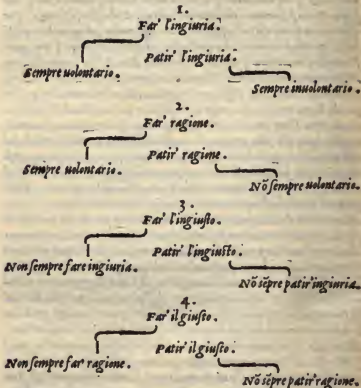 1.
Far' l'ingiuria.
Patir' l'ingiuria.
Sempre uolontario.
Sempre inuolontario.
2.
Far' ragione.
Patir' ragione.
Sempre uolontario.
Nõ sempre uolontario.
3.
Far' l'ingiusto.
Patir' l'ingiusto.
Non sempre fare ingiuria.
Nõ sẽpre patir' ingiuria.
4.
Far' il giusto.
Patir' il giusto.
Non sempre far' ragione.
Nõ sẽpre patir' ragione.